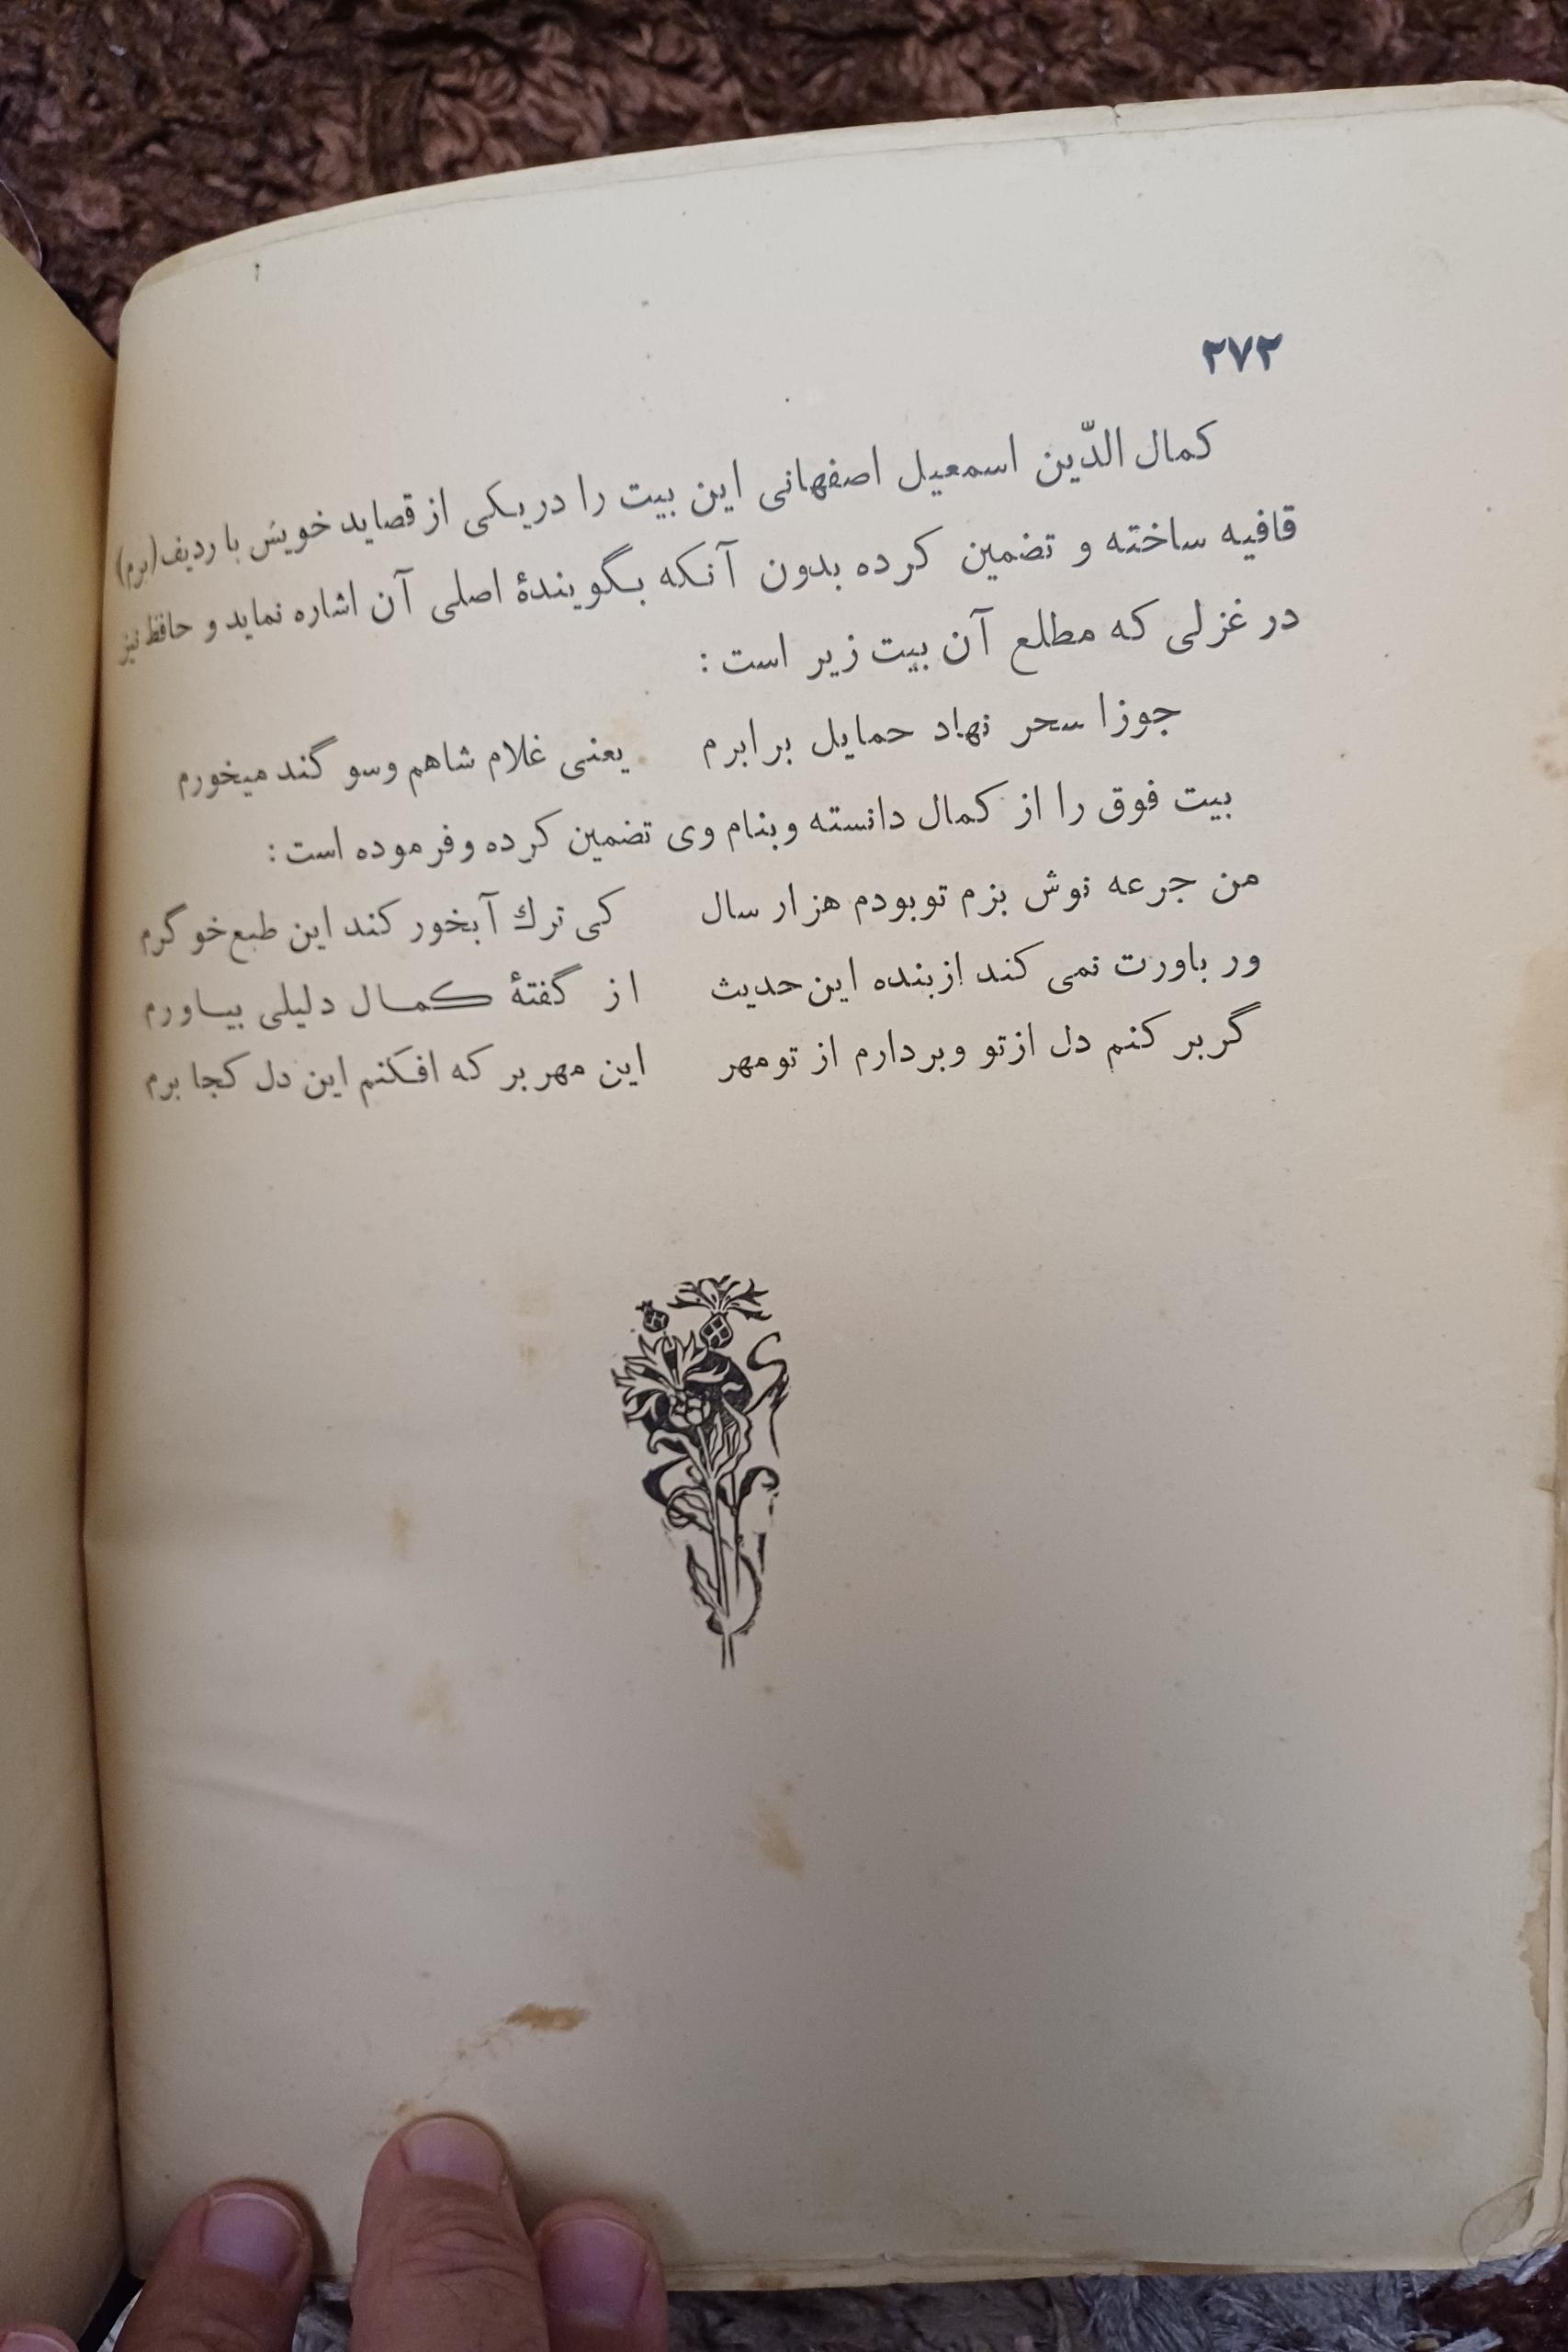 ۲۷۲
کمال الدّین اسمعیل اصفهانی این بیت را دریکی از قصاید خویش با ردیف (برم)
قافیه ساخته و تضمین کرده بدون آنکه بگویندهٔ اصلی آن اشاره نماید و حافظ نیز
در غزلی که مطلع آن بیت زیر است :
جوزا سحر نهاد حمایل برابرم یعنی غلام شاهم وسو گند میخورم
بیت فوق را از کمال دانسته وبنام وی تضمین کرده وفرموده است :
من جرعه نوش بزم توبودم هزار سال کی ترك آبخور کند این طبع خو گرم
ور باورت نمی کند ازبنده این حدیث از گفتهٔ کمال دلیلی بیاورم
گربر کنم دل ازتو وبردارم از تومهر این مهربر که افکنم این دل کجا برم